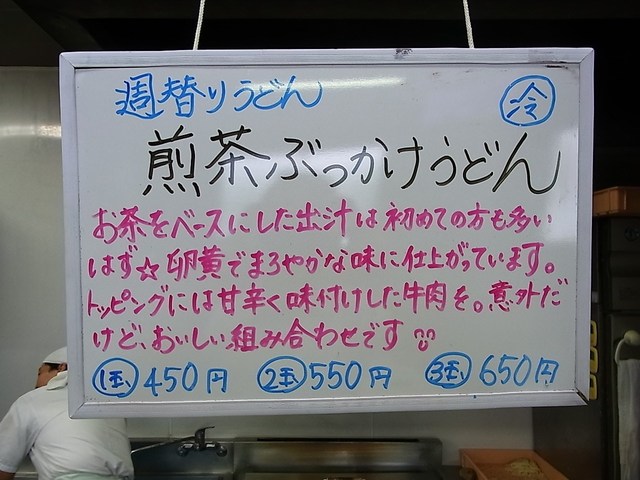 週替りうどん 冷
煎茶ぶっかけうどん
お茶をベースにした出汁は初めての方も多い
はず☆卵黄でまろやかな味に仕上がっています。
トッピングには甘辛く味付けした牛肉を。意外だ
けど、おいしい組み合わせです
1玉 450円 2玉 550円 3玉 650円